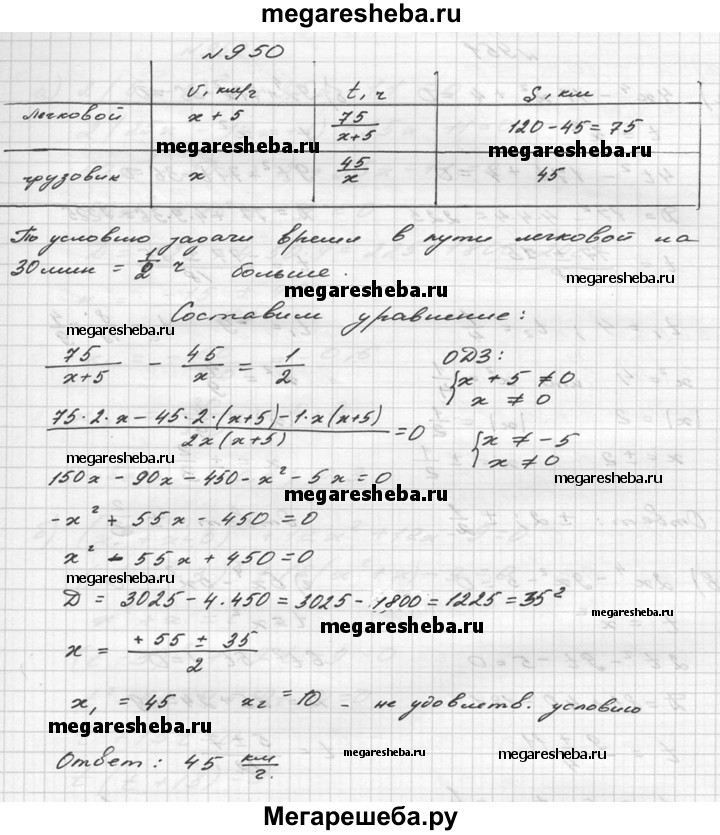 megaresheba.ru
№950
v, км/ч t, ч S, км
легковой x + 5 75/(x+5) 120 - 45 = 75
megaresheba.ru megaresheba.ru
грузовик x 45/x 45
По условию задачи время в пути легковой на
30 мин = 1/2 ч больше.
megaresheba.ru
Составим уравнение:
megaresheba.ru megaresheba.ru
75/(x+5) - 45/x = 1/2 ОДЗ:
{ x + 5 ≠ 0
x ≠ 0
(75·2·x - 45·2·(x+5) - 1·x(x+5))/(2x(x+5)) = 0
{ x ≠ -5
x ≠ 0
megaresheba.ru
150x - 90x - 450 - x² - 5x = 0
megaresheba.ru megaresheba.ru
-x² + 55x - 450 = 0
x² - 55x + 450 = 0
megaresheba.ru
D = 3025 - 4·450 = 3025 - 1800 = 1225 = 35²
megaresheba.ru
megaresheba.ru
x = (+55 ± 35)/2
x₁ = 45 x₂ = 10 - не удовлетв. условию
megaresheba.ru
Ответ: 45 км/ч.
megaresheba.ru megaresheba.ru
Мегарешеба.ру